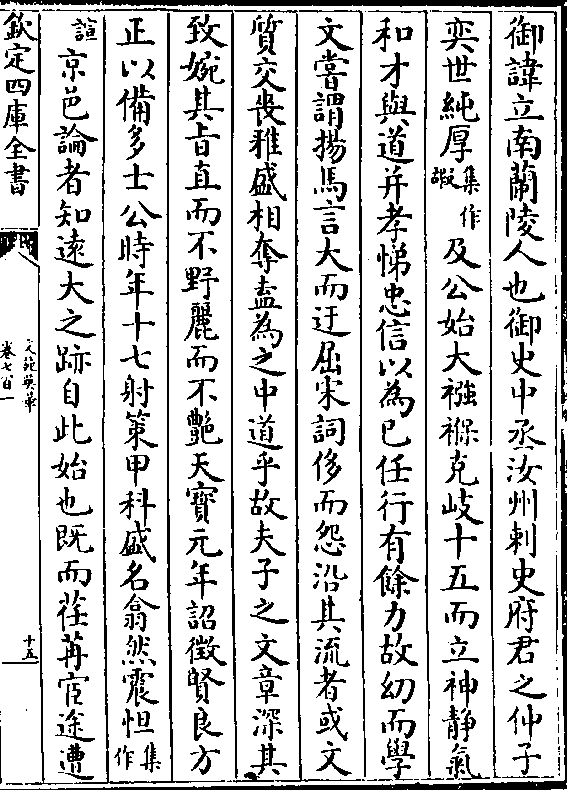 御諱立南蘭陵人也御史中丞汝州刺史府君之仲子
奕世純厚集作嘏及公始大襁褓克岐十五而立神靜氣
和才與道并孝悌忠信以為已任行有餘力故幼而學
文嘗謂揚馬言大而迂屈宋詞侈而怨沿其流者或文
質交喪雅鄭相奪盍為之中道乎故夫子之文章深其
致婉其旨直而不野麗而不艶天寶元年詔徴賢良方
正以備多士公時年十七射策甲科盛名翕然震怛集作
諠京邑論者知遠大之跡自此始也既而荏苒宦途遭
欽定四庫全書
文苑英華
卷七百一
十五